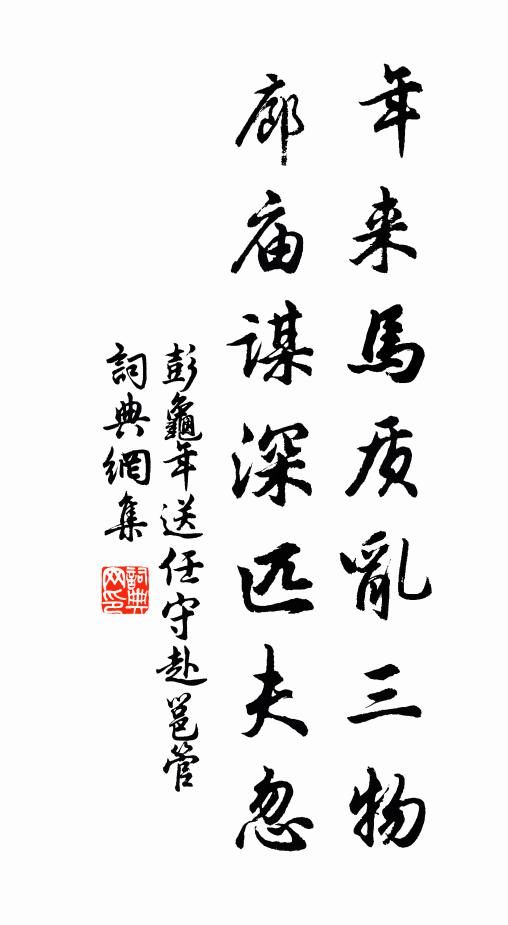 年来馬质亂三物
廊庙謀深匹夫忽
彭龜年送任守赴邕管
詞典網集
詞典网印